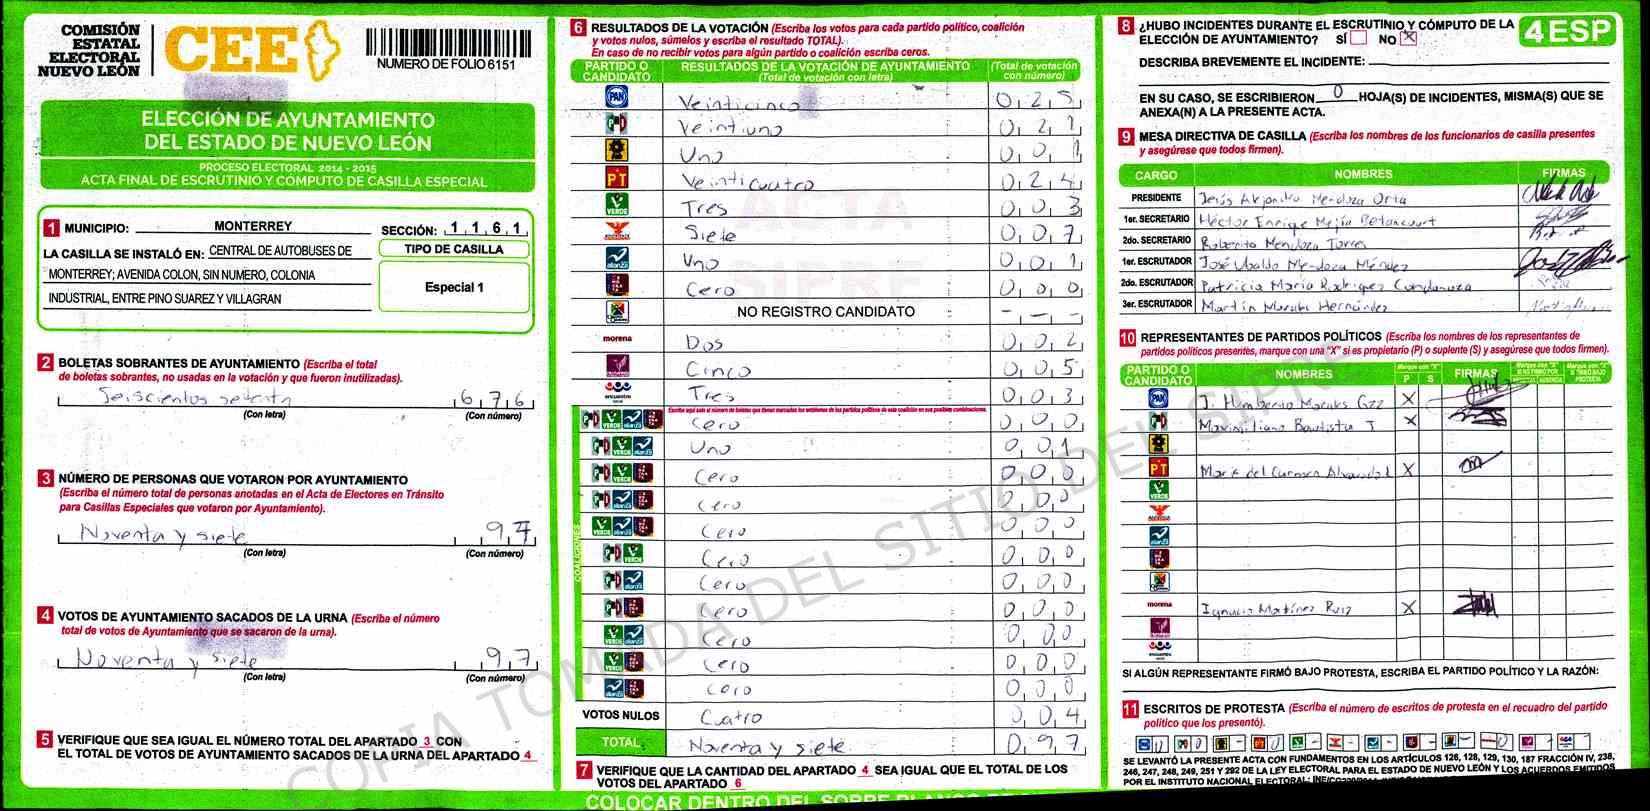 COMISIÓN
ESTATAL
ELECTORAL
NUEVO LEÓN
CEE
NUMERO DE FOLIO 6151
ELECCIÓN DE AYUNTAMIENTO
DEL ESTADO DE NUEVO LEÓN
PROCESO ELECTORAL 2014 - 2015
ACTA FINAL DE ESCRUTINIO Y CÓMPUTO DE CASILLA ESPECIAL
1 MUNICIPIO: MONTERREY SECCIÓN: 1 1 6 1
LA CASILLA SE INSTALÓ EN: CENTRAL DE AUTOBUSES DE
MONTERREY; AVENIDA COLON, SIN NUMERO, COLONIA
INDUSTRIAL, ENTRE PINO SUAREZ Y VILLAGRAN
TIPO DE CASILLA
Especial 1
2 BOLETAS SOBRANTES DE AYUNTAMIENTO (Escriba el total
de boletas sobrantes, no usadas en la votación y que fueron inutilizadas).
Seiscientos setenta 6 7 6
(Con letra) (Con número)
3 NÚMERO DE PERSONAS QUE VOTARON POR AYUNTAMIENTO
(Escriba el número total de personas anotadas en el Acta de Electores en Tránsito
para Casillas Especiales que votaron por Ayuntamiento).
Noventa y siete 9 7
(Con letra) (Con número)
4 VOTOS DE AYUNTAMIENTO SACADOS DE LA URNA (Escriba el número
total de votos de Ayuntamiento que se sacaron de la urna).
Noventa y siete 9 7
(Con letra) (Con número)
5 VERIFIQUE QUE SEA IGUAL EL NÚMERO TOTAL DEL APARTADO 3 CON
EL TOTAL DE VOTOS DE AYUNTAMIENTO SACADOS DE LA URNA DEL APARTADO 4
6 RESULTADOS DE LA VOTACIÓN (Escriba los votos para cada partido político, coalición
y votos nulos, súmelos y escriba el resultado TOTAL).
En caso de no recibir votos para algún partido o coalición escriba ceros.
PARTIDO O CANDIDATO RESULTADOS DE LA VOTACIÓN DE AYUNTAMIENTO (Total de votación con letra) (Total de votación con número)
PAN Veinticinco 0 2 5
Veintiuno 0 2 1
Uno 0 0 1
PT Veinticuatro 0 2 4
VERDE Tres 0 0 3
Siete 0 0 7
alianza Uno 0 0 1
Cero 0 0 0
NO REGISTRO CANDIDATO - - -
morena Dos 0 0 2
Cinco 0 0 5
encuentro social Tres 0 0 3
Escriba aquí solo el número de boletas que tienen marcados los emblemas de los partidos políticos de esta coalición en sus posibles combinaciones.
COALICIONES
Cero 0 0 0
Uno 0 0 1
Cero 0 0 0
Cero 0 0 0
Cero 0 0 0
Cero 0 0 0
Cero 0 0 0
Cero 0 0 0
Cero 0 0 0
Cero 0 0 0
Cero 0 0 0
VOTOS NULOS Cuatro 0 0 4
TOTAL Noventa y siete 0 9 7
7 VERIFIQUE QUE LA CANTIDAD DEL APARTADO 4 SEA IGUAL QUE EL TOTAL DE LOS
VOTOS DEL APARTADO 6
COLOCAR DENTRO DEL SOBRE BLANCO
ACTA
SIPRE
COPIA TOMADA DEL SITIO DEL SIPRE
8 ¿HUBO INCIDENTES DURANTE EL ESCRUTINIO Y CÓMPUTO DE LA
ELECCIÓN DE AYUNTAMIENTO? SÍ NO X
4 ESP
DESCRIBA BREVEMENTE EL INCIDENTE:
EN SU CASO, SE ESCRIBIERON 0 HOJA(S) DE INCIDENTES, MISMA(S) QUE SE
ANEXA(N) A LA PRESENTE ACTA.
9 MESA DIRECTIVA DE CASILLA (Escriba los nombres de los funcionarios de casilla presentes
y asegúrese que todos firmen).
CARGO NOMBRES FIRMAS
PRESIDENTE Jesús Alejandro Mendoza Orta
1er. SECRETARIO Héctor Enrique Mejía Betancourt
2do. SECRETARIO Roberto Mendoza Torres
1er. ESCRUTADOR José Ubaldo Mendoza Méndez
2do. ESCRUTADOR Patricia María Rodríguez
3er. ESCRUTADOR Martín Morales Hernández
10 REPRESENTANTES DE PARTIDOS POLÍTICOS (Escriba los nombres de los representantes de
partidos políticos presentes, marque con una "X" si es propietario (P) o suplente (S) y asegúrese que todos firmen).
PARTIDO O CANDIDATO NOMBRES Marque con "X" P S FIRMAS Marque con "X" SI NO FIRMÓ POR Marque con "X" SI FIRMÓ BAJO PROTESTA
PAN J. Humberto Morales Gzz X
Maximiliano Bautista J X
PT María del Carmen Alvarado X
VERDE
morena Ignacio Martínez Ruiz X
encuentro social
SI ALGÚN REPRESENTANTE FIRMÓ BAJO PROTESTA, ESCRIBA EL PARTIDO POLÍTICO Y LA RAZÓN:
11 ESCRITOS DE PROTESTA (Escriba el número de escritos de protesta en el recuadro del partido
político que los presentó).
SE LEVANTÓ LA PRESENTE ACTA CON FUNDAMENTOS EN LOS ARTÍCULOS 126, 128, 129, 130, 187 FRACCIÓN IV, 238,
246, 247, 248, 249, 251 Y 292 DE LA LEY ELECTORAL PARA EL ESTADO DE NUEVO LEÓN Y LOS ACUERDOS EMITIDOS
POR EL INSTITUTO NACIONAL ELECTORAL: